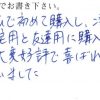 でお書き下さい。
んで初めて購入し、ご
宅用と友達用に購入
大変好評で喜ばれ
いました